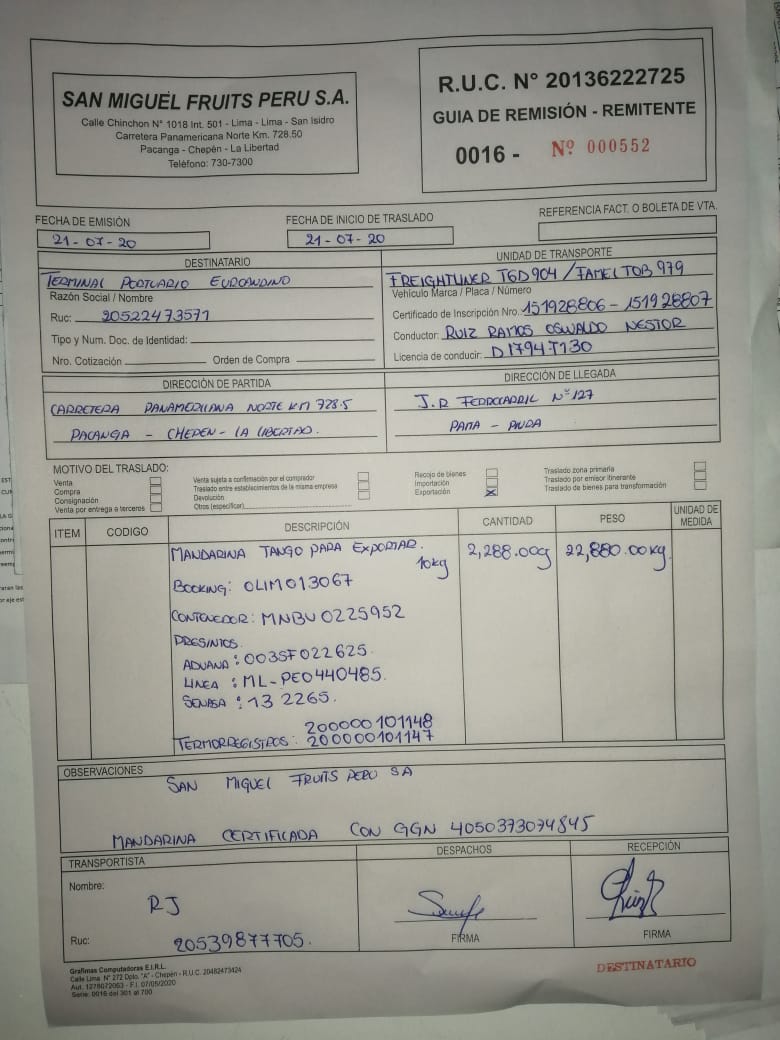 SAN MIGUEL FRUITS PERU S.A.
Calle Chinchon N° 1018 Int. 501 - Lima - Lima - San Isidro
Carretera Panamericana Norte Km. 728.50
Pacanga - Chepén - La Libertad
Teléfono: 730-7300
R.U.C. N° 20136222725
GUIA DE REMISIÓN - REMITENTE
0016 - Nº 000552
FECHA DE EMISIÓN
21-07-20
FECHA DE INICIO DE TRASLADO
21-07-20
REFERENCIA FACT. O BOLETA DE VTA.
DESTINATARIO
TERMINAL PORTUARIO EUROANDINO
Razón Social / Nombre
Ruc: 20522473571
Tipo y Num. Doc. de Identidad:
Nro. Cotización Orden de Compra
UNIDAD DE TRANSPORTE
FREIGHTLINER T6D904 / FAMEL TOB 979
Vehículo Marca / Placa / Número
Certificado de Inscripción Nro. 151928806 - 151928807
Conductor: RUIZ RAMOS OSWALDO NESTOR
Licencia de conducir: D17947130
DIRECCIÓN DE PARTIDA
CARRETERA PANAMERICANA NORTE KM 728.5
PACANGA - CHEPEN - LA LIBERTAD.
DIRECCIÓN DE LLEGADA
J.R FERROCARRIL Nº 127
PAITA - PIURA
MOTIVO DEL TRASLADO:
Venta
Compra
Consignación
Venta por entrega a terceros
Venta sujeta a confirmación por el comprador
Traslado entre establecimientos de la misma empresa
Devolución
Otros (especificar)
Recojo de bienes
Importación
Exportación X
Traslado zona primaria
Traslado por emisor itinerante
Traslado de bienes para transformación
ITEM CODIGO DESCRIPCIÓN CANTIDAD PESO UNIDAD DE MEDIDA
MANDARINA TANGO PARA EXPORTAR. 2,288.00g 22,880.00kg.
10kg
BOOKING: OLIM013067
CONTENEDOR: MNBU 0225952
PRESINTOS.
ADUANA: 003SF022625.
LINEA : ML-PE0440485.
SENASA : 13 2265.
200000101148
TERMORREGISTROS: 200000101147
OBSERVACIONES
SAN MIGUEL FRUITS PERU SA
MANDARINA CERTIFICADA CON GGN 4050373074845
TRANSPORTISTA
Nombre:
RJ
Ruc: 20539877705.
DESPACHOS
FIRMA
RECEPCIÓN
FIRMA
Grafimas Computadoras E.I.R.L.
Calle Lima N° 272 Dpto. "A" - Chepén - R.U.C. 20482473424
Aut. 1276072063 - F.I. 07/05/2020
Serie: 0016 del 301 al 700
DESTINATARIO